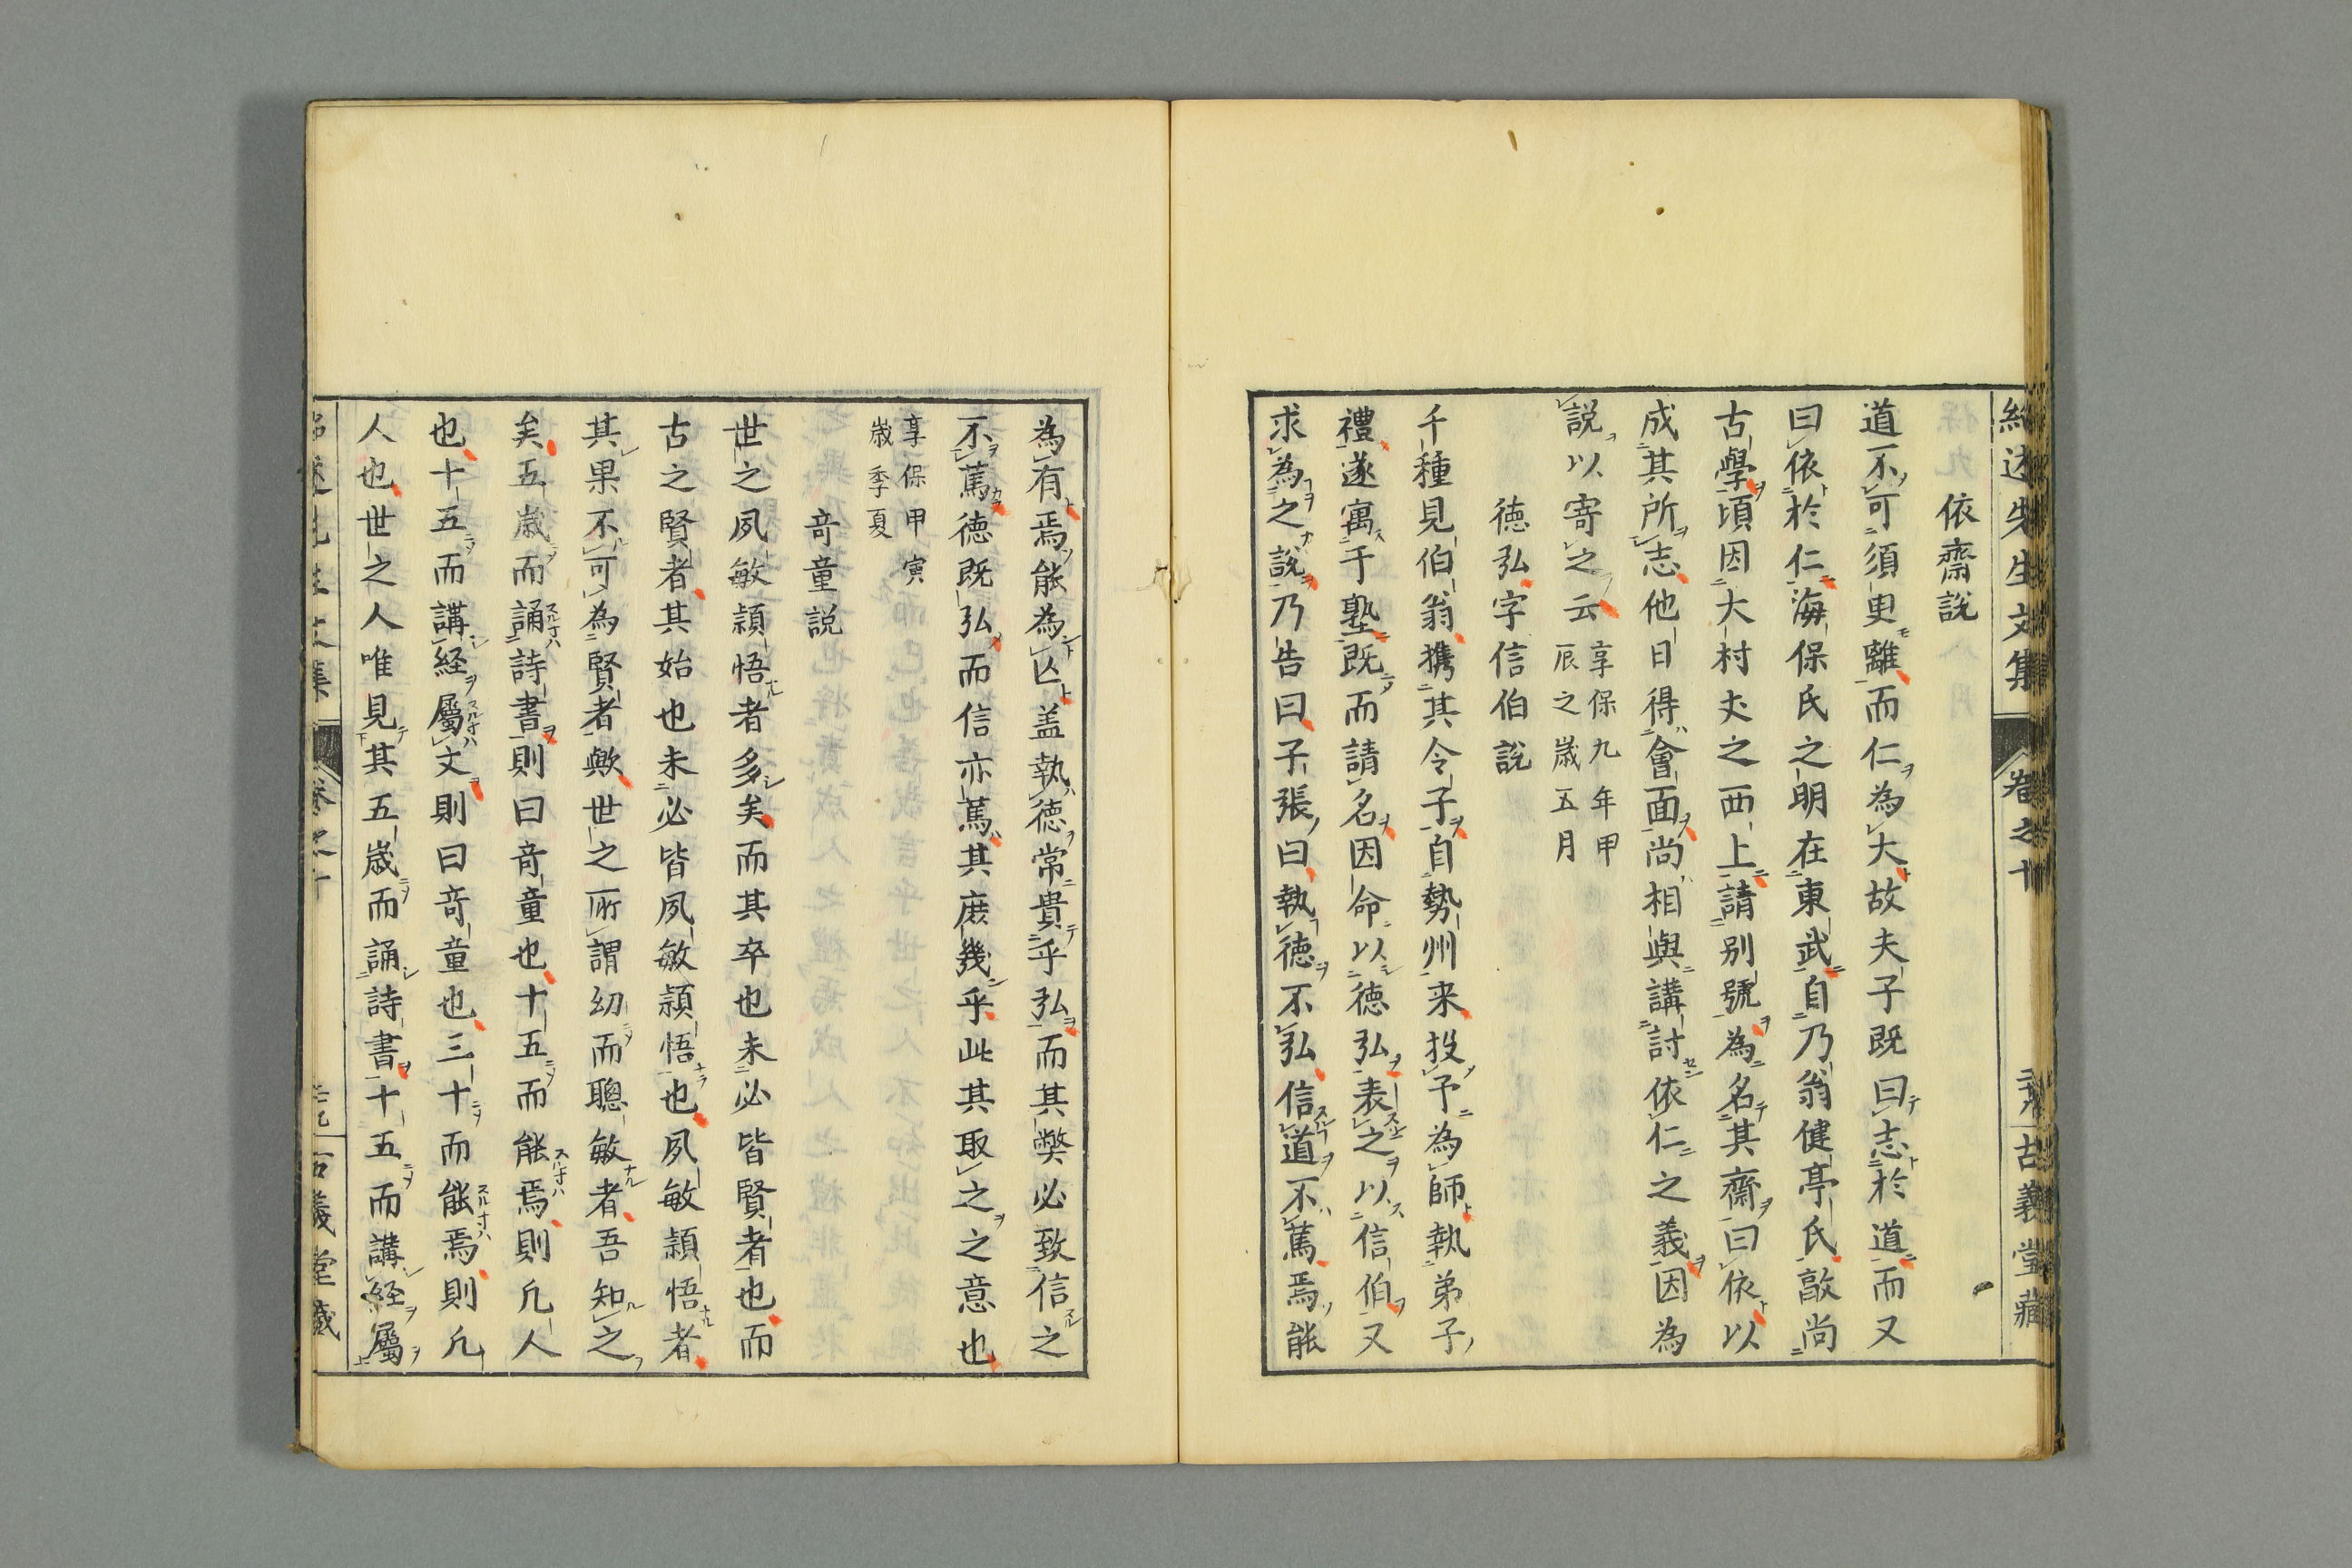 紹述先生文集 卷之十 古義堂藏
依齋說
道不可須臾離而仁為大故夫子既曰志於道而又
曰依於仁海保氏之明在東武自乃翁健亭氏敦尚
古學頃因大村丈之西上請別號為名其齋曰依以
成其所志他日得會面尚相與講討依仁之義因為
說以寄之云
享保九年甲
辰之歲五月
德弘字信伯說
千種見伯翁携其令子自勢州来投予為師執弟子
禮遂寓于塾既而請名因命以德弘表之以信伯又
求為之說乃告曰子張曰執德不弘信道不篤焉能
為有焉能為亾盖執德常貴乎弘而其弊必致信之
不篤德既弘而信亦篤其庶幾乎此其取之之意也
享保甲寅
歲季夏
竒童說
世之夙敏穎悟者多矣而其卒也未必皆賢者也而
古之賢者其始也未必皆夙敏穎悟也夙敏穎悟者
其果不可為賢者歟世之所謂幼而聰敏者吾知之
矣五歲而誦詩書則曰竒童也十五而能焉則凡人
也十五而講経屬文則曰竒童也三十而能焉則凡
人也世之人唯見其五歲而誦詩書十五而講経屬